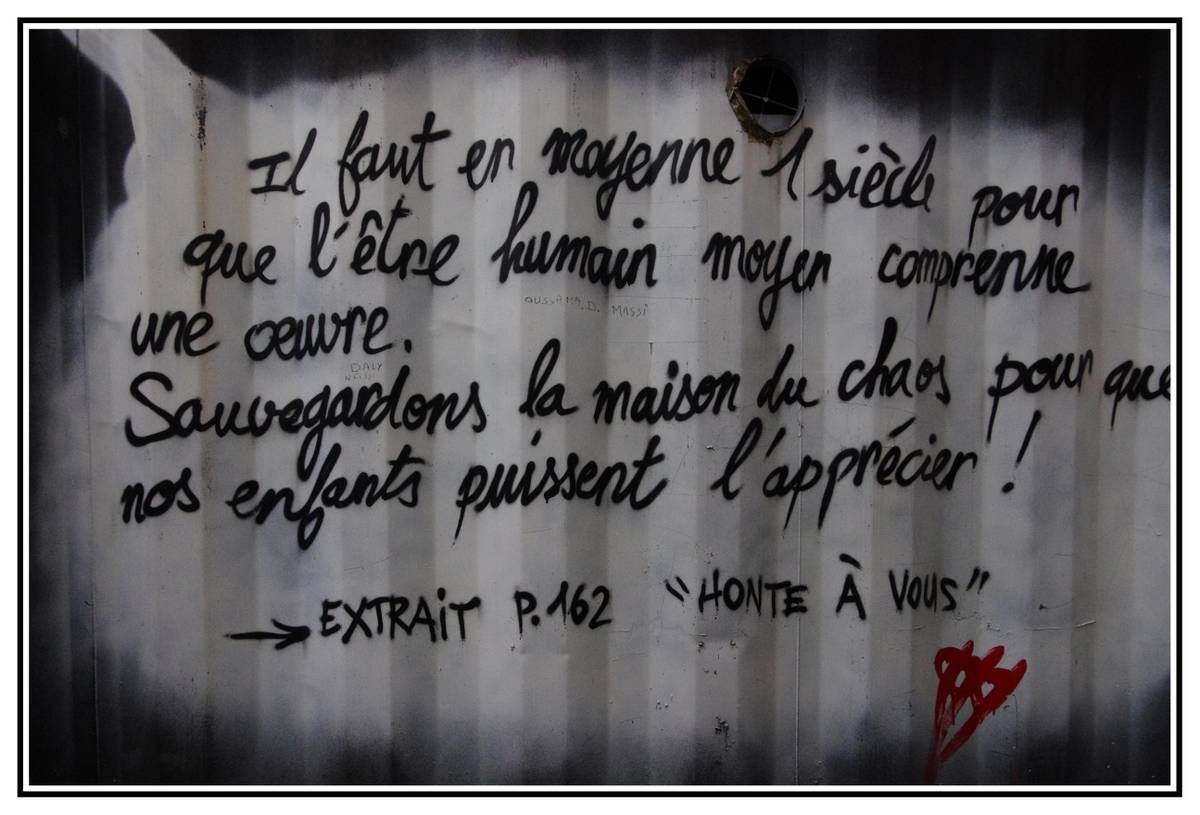 Il faut en moyenne 1 siècle pour
que l'être humain moyen comprenne
OUSSAMA.D. MASSI
une oeuvre.
DALY
Sauvegardons la maison du chaos pour que
nos enfants puissent l'apprécier !
→ EXTRAIT P.162 "HONTE À VOUS"